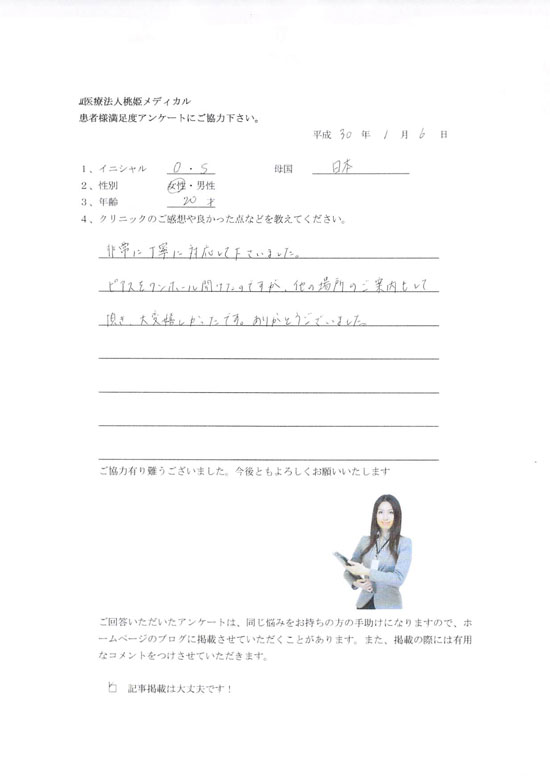 医療法人桃姫メディカル
患者様満足度アンケートにご協力下さい。
平成 30 年 1 月 6 日
1、イニシャル O・S 母国 日本
2、性別 女性・男性
3、年齢 20 才
4、クリニックのご感想や良かった点などを教えてください。
非常に丁寧に対応して下さいました。
ピアスをワンホール開けたのですが、他の場所のご案内もして
頂き、大変嬉しかったです。ありがとうございました。
ご協力有り難うございました。今後ともよろしくお願いいたします
ご回答いただいたアンケートは、同じ悩みをお持ちの方の手助けになりますので、ホ
ームページのブログに掲載させていただくことがあります。また、掲載の際には有用
なコメントをつけさせていただきます。
記事掲載は大丈夫です！